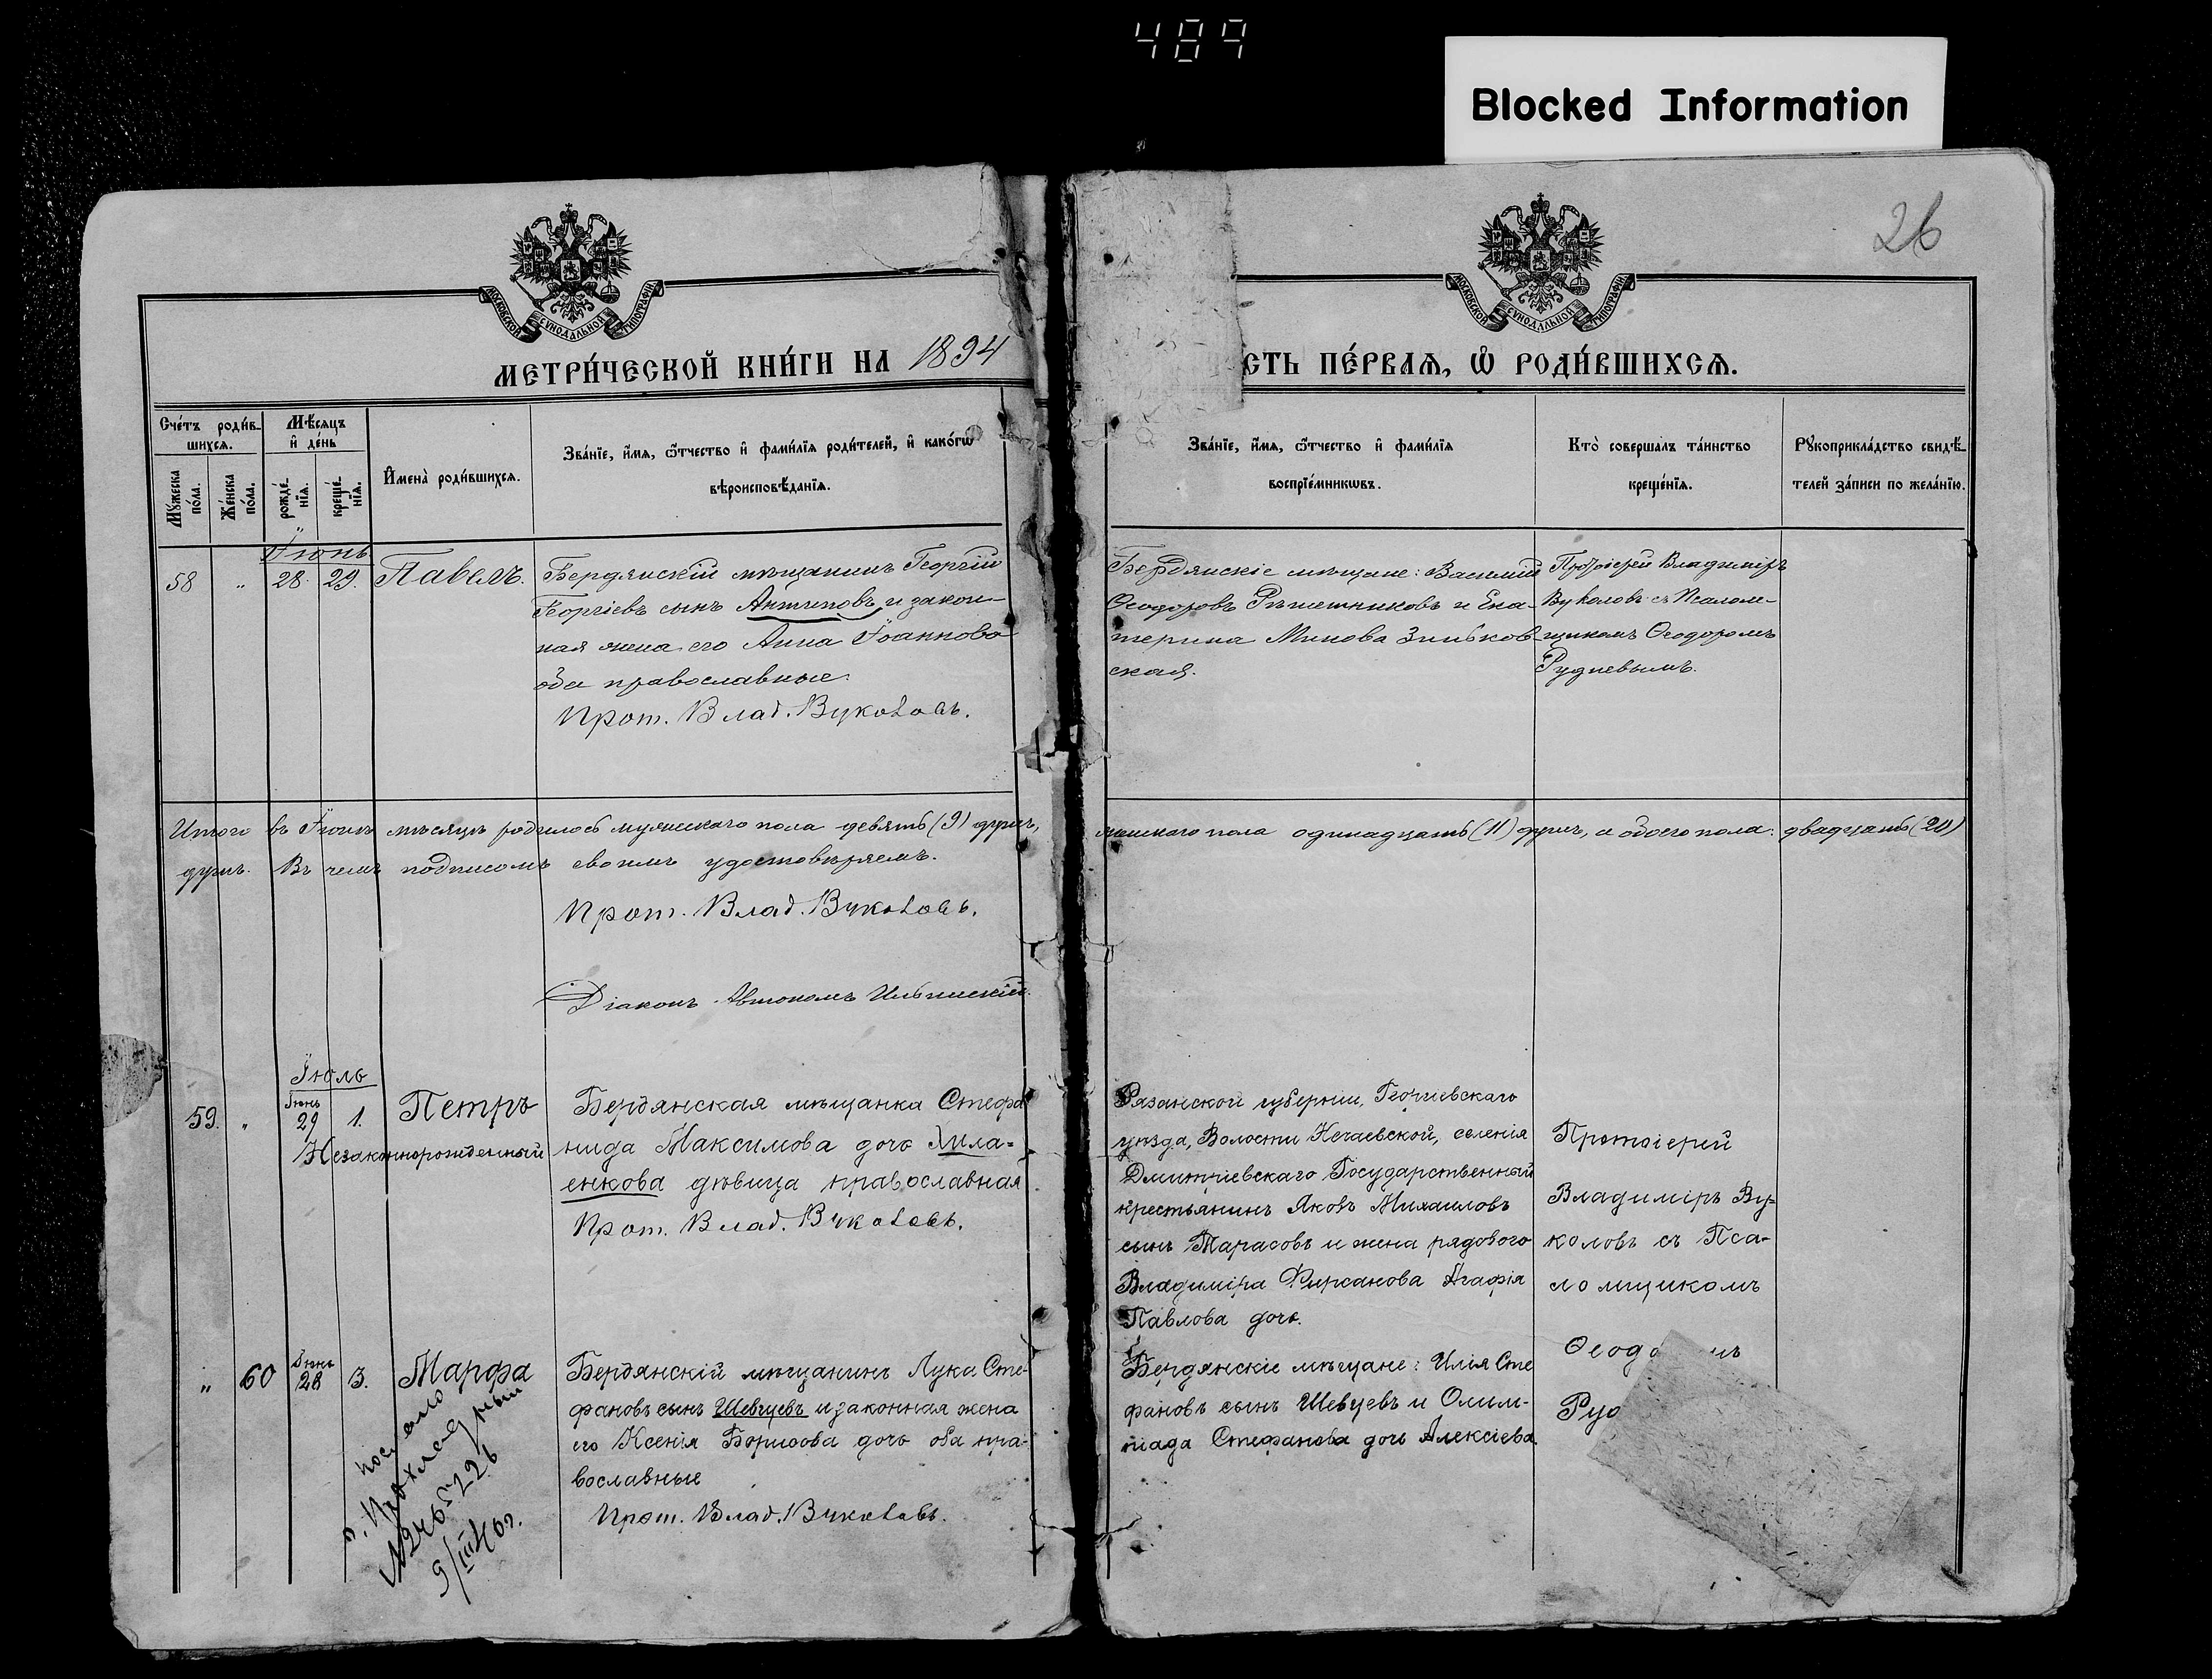 489
Blocked Information
26
МОСКОВСКОЙ СѴНОДАЛЬНОЙ ТИПОГРАФІИ
МОСКОВСКОЙ СѴНОДАЛЬНОЙ ТИПОГРАФІИ
МЕТРИ́ЧЕСКОЙ КНИ́ГИ НА 1894
СТЬ ПЕ́РВАѦ, Ѡ҆ РОДИ́ВШИХСѦ.
Сче́тъ роди́в-
шихсѧ.
Мѣ́сѧцъ
и҆ де́нь
Мꙋ́жеска по́ла.
Же́нска по́ла.
рожде́-нїѧ.
креще́-нїѧ.
И҆мена̀ роди́вшихсѧ.
Зва́нїе, и҆́мѧ, ѻ҆́тчество и҆ фами́лїѧ роди́телей, и҆ како́гѡ
вѣроисповѣ́данїѧ.
Зва́нїе, и҆́мѧ, ѻ҆́тчество и҆ фами́лїѧ
воспрїе́мникѡвъ.
Кто̀ соверша́лъ та́инство
креще́нїѧ.
Рꙋкоприкла́дство свидѣ́-
телей за́писи по жела́нїю.
Іюнь
58 " 28. 29. Павелъ.
Бердянскій мѣщанинъ Георгій
Георгіевъ сынъ Антиповъ и закон-
ная жена его Анна Іоаннова
оба православные.
Прот. Влад. Вуколовъ.
Бердянскіе мѣщане: Василій
Ѳеодоровъ Рѣшетниковъ и Ека-
терина Минова Зиньков-
ская.
Протоіерей Владиміръ
Вуколовъ съ Псалом-
щикомъ Ѳеодоромъ
Рудневымъ.
Итого въ Іюнѣ мѣсяцѣ родилось мужескаго пола девять (9) душъ, женскаго пола одинадцать (11) душъ, а обоего пола: двадцать (20)
душъ. Въ чемъ подписомъ своимъ удостовѣряемъ.
Прот. Влад. Вуколовъ.
Діаконъ Автономъ Ильинскій.
Іюль
59. " Іюнь 29 1. Петръ
Незаконнорожденный
Бердянская мѣщанка Стефа
нида Максимова дочь Хила=
енкова дѣвица православная
Прот. Влад. Вуколовъ.
Рязанской губерніи, Георгіевскаго
уѣзда, Волости Нечаевской, селенія
Дмитріевскаго Государственный
крестьянинъ Яковъ Михаиловъ
сынъ Тарасовъ и жена рядового
Владиміра Фирсанова Агафія
Павлова дочь.
Протоіерей
Владиміръ Ву=
коловъ съ Пса-
ломщикомъ
Ѳеодо
Руд
" 60 Іюнь 28 3. Марфа
Бердянскій мѣщанинъ Лука Сте-
фановъ сынъ Шевцевъ и законная жена
его Ксенія Борисова дочь оба пра-
вославные
Прот. Влад. Вуколовъ.
Бердянскіе мѣщане: Илія Сте
фановъ сынъ Шевцевъ и Олим-
піада Стефанова дочь Алексіева.
послано
п. Прохладный